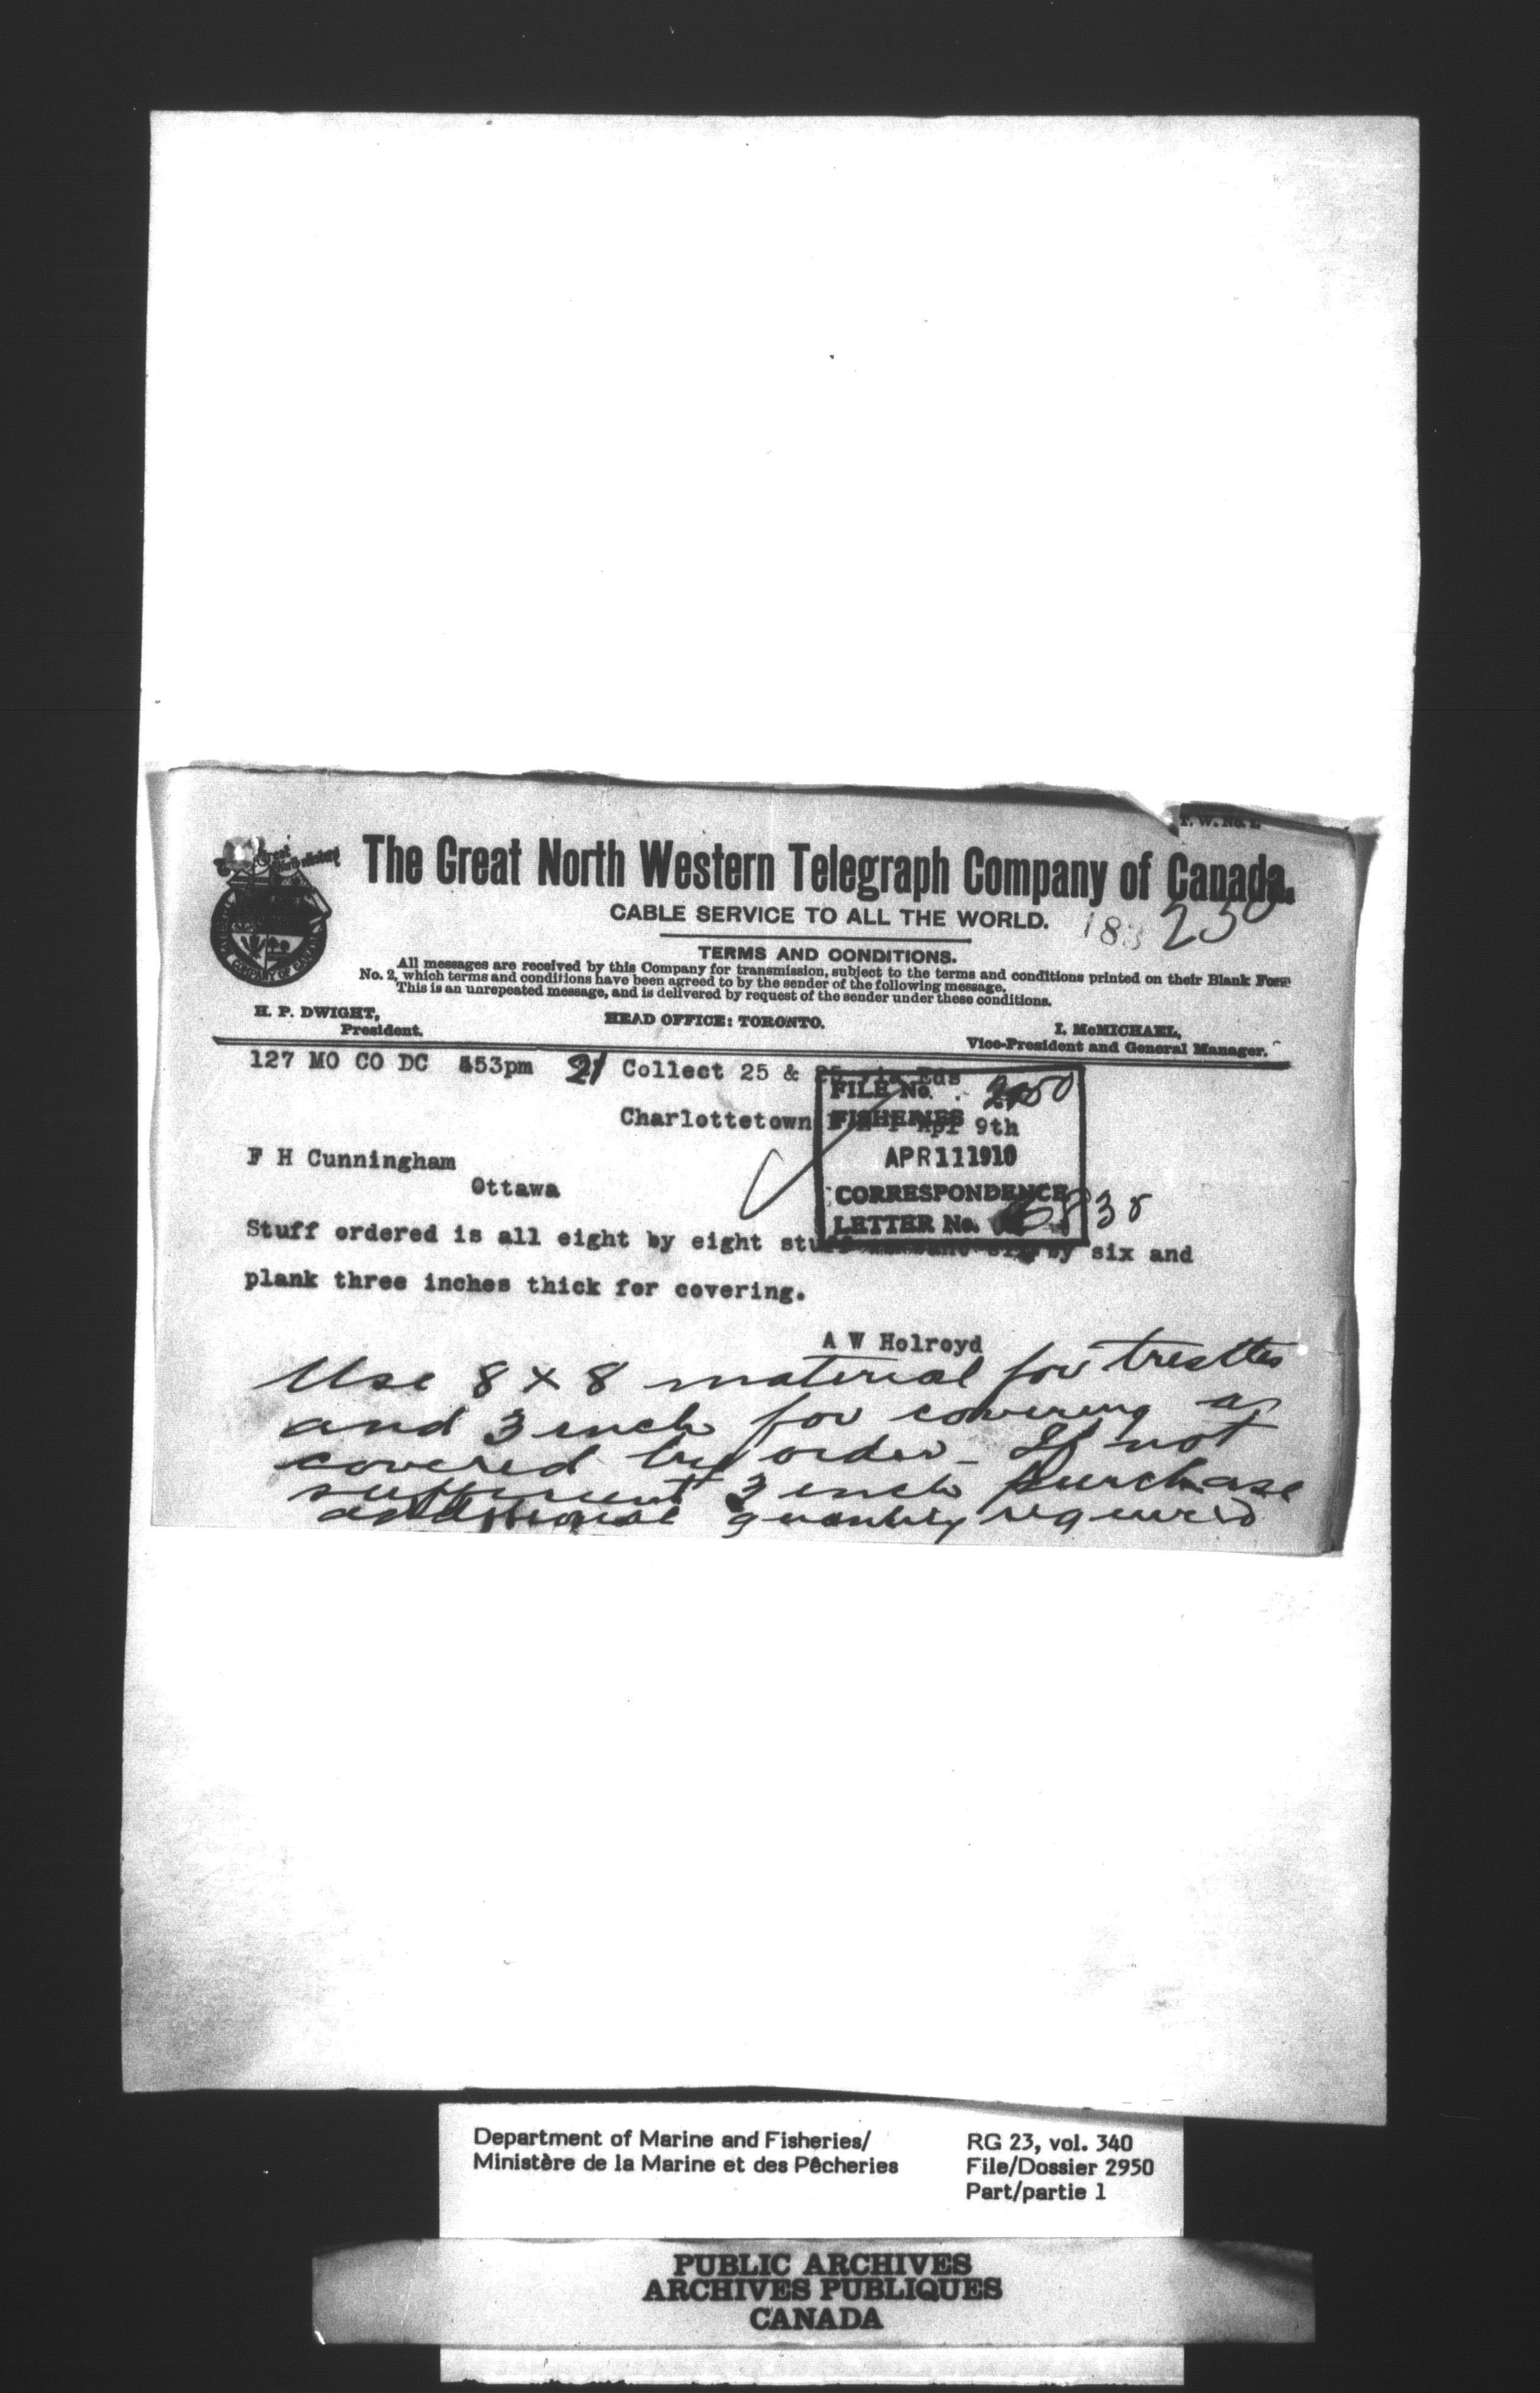 T. W. No. 2.
The Great North Western Telegraph Company of Canada.
CABLE SERVICE TO ALL THE WORLD.
183 230
TERMS AND CONDITIONS.
All messages are received by this Company for transmission, subject to the terms and conditions printed on their Blank Form
No. 2, which terms and conditions have been agreed to by the sender of the following message.
This is an unrepeated message, and is delivered by request of the sender under these conditions.
H. P. DWIGHT,
President.
HEAD OFFICE: TORONTO.
I. McMICHAEL,
Vice-President and General Manager.
127 MO CO DC 453pm 21 Collect 25 & 25 via Eds
FILE No. 2950
Charlottetown Apl 9th
FISHERIES
APR 11 1910
F H Cunningham
Ottawa
CORRESPONDENCE
LETTER No.
Stuff ordered is all eight by eight stuff we want six by six and
plank three inches thick for covering.
A W Holroyd
Use 8 x 8 material for trestles
and 3 inch for covering as
covered by order - If not
sufficient 3 inch purchase
additional quantity required
Department of Marine and Fisheries/
Ministère de la Marine et des Pêcheries
RG 23, vol. 340
File/Dossier 2950
Part/partie 1
PUBLIC ARCHIVES
ARCHIVES PUBLIQUES
CANADA